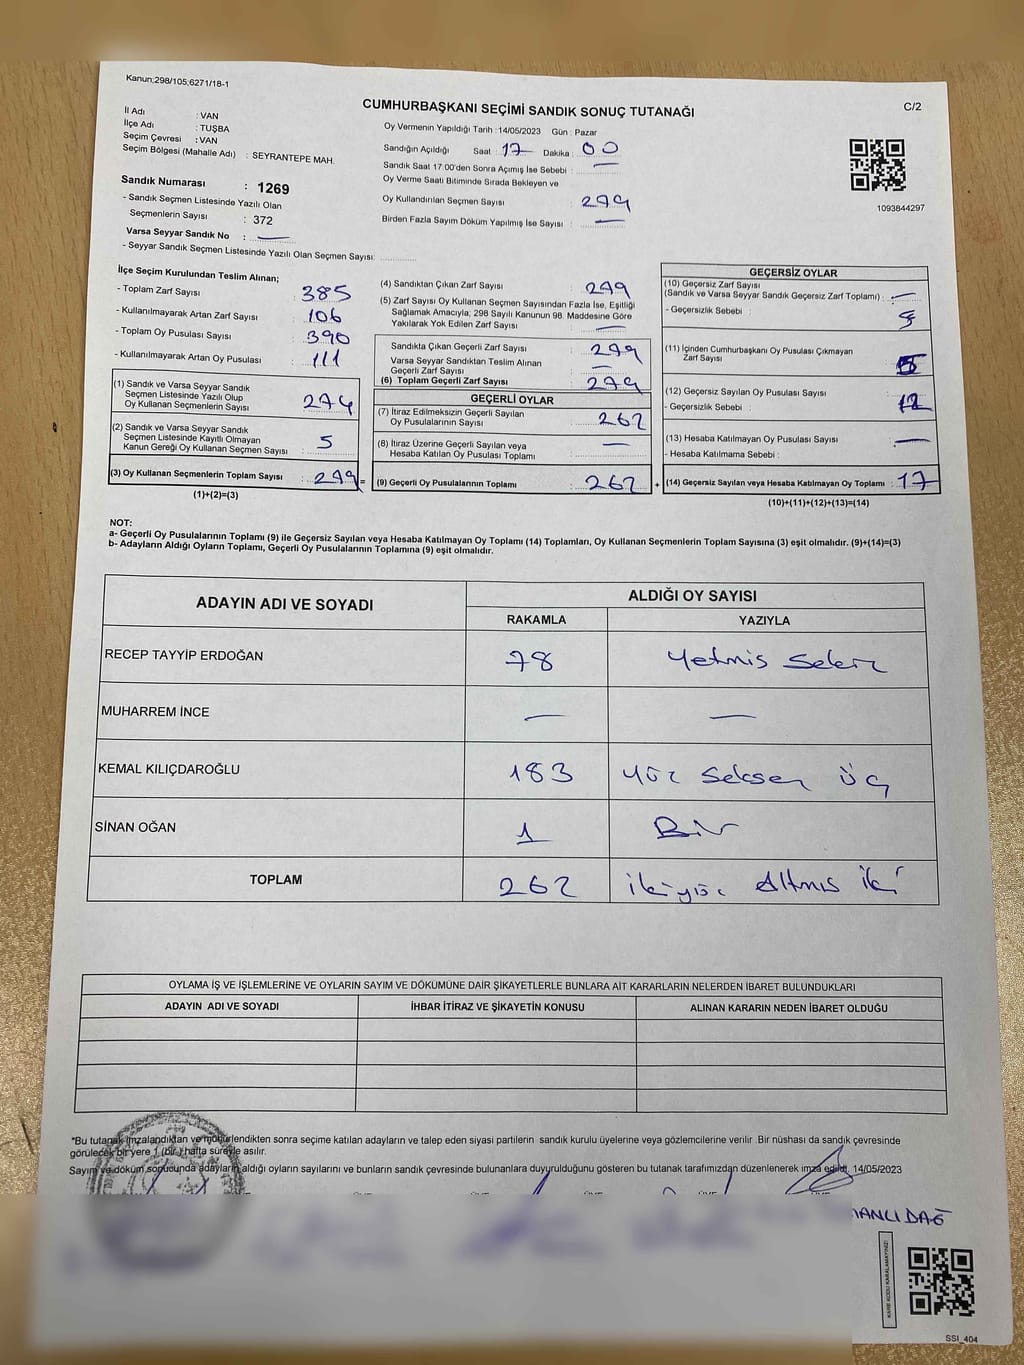 Kanun;298/105;6271/18-1
CUMHURBAŞKANI SEÇİMİ SANDIK SONUÇ TUTANAĞI
C/2
İl Adı : VAN
İlçe Adı : TUŞBA
Seçim Çevresi : VAN
Seçim Bölgesi (Mahalle Adı) : SEYRANTEPE MAH.
Sandık Numarası : 1269
- Sandık Seçmen Listesinde Yazılı Olan
Seçmenlerin Sayısı : 372
Varsa Seyyar Sandık No : —
- Seyyar Sandık Seçmen Listesinde Yazılı Olan Seçmen Sayısı:
Oy Vermenin Yapıldığı Tarih :14/05/2023 Gün : Pazar
Sandığın Açıldığı Saat : 17 Dakika : 00
Sandık Saat 17:00'den Sonra Açımış İse Sebebi : —
Oy Verme Saati Bitiminde Sırada Bekleyen ve
Oy Kullandırılan Seçmen Sayısı : 279
Birden Fazla Sayım Döküm Yapılmış İse Sayısı : —
1093844297
İlçe Seçim Kurulundan Teslim Alınan;
- Toplam Zarf Sayısı : 385
- Kullanılmayarak Artan Zarf Sayısı : 106
- Toplam Oy Pusulası Sayısı : 390
- Kullanılmayarak Artan Oy Pusulası : 111
(1) Sandık ve Varsa Seyyar Sandık
Seçmen Listesinde Yazılı Olup
Oy Kullanan Seçmenlerin Sayısı : 274
(2) Sandık ve Varsa Seyyar Sandık
Seçmen Listesinde Kayıtlı Olmayan
Kanun Gereği Oy Kullanan Seçmen Sayısı : 5
(3) Oy Kullanan Seçmenlerin Toplam Sayısı : 279 =
(1)+(2)=(3)
(4) Sandıktan Çıkan Zarf Sayısı : 279
(5) Zarf Sayısı Oy Kullanan Seçmen Sayısından Fazla İse, Eşitliği
Sağlamak Amacıyla; 298 Sayılı Kanunun 98. Maddesine Göre
Yakılarak Yok Edilen Zarf Sayısı : —
Sandıkta Çıkan Geçerli Zarf Sayısı : 279
Varsa Seyyar Sandıktan Teslim Alınan
Geçerli Zarf Sayısı : —
(6) Toplam Geçerli Zarf Sayısı : 279
GEÇERLİ OYLAR
(7) İtiraz Edilmeksizin Geçerli Sayılan
Oy Pusulalarının Sayısı : 262
(8) İtiraz Üzerine Geçerli Sayılan veya
Hesaba Katılan Oy Pusulası Toplamı : —
(9) Geçerli Oy Pusulalarının Toplamı : 262 +
GEÇERSİZ OYLAR
(10) Geçersiz Zarf Sayısı
(Sandık ve Varsa Seyyar Sandık Geçersiz Zarf Toplamı) : —
- Geçersizlik Sebebi :
(11) İçinden Cumhurbaşkanı Oy Pusulası Çıkmayan
Zarf Sayısı : 5
(12) Geçersiz Sayılan Oy Pusulası Sayısı : 12
- Geçersizlik Sebebi :
(13) Hesaba Katılmayan Oy Pusulası Sayısı : —
- Hesaba Katılmama Sebebi :
(14) Geçersiz Sayılan veya Hesaba Katılmayan Oy Toplamı : 17
(10)+(11)+(12)+(13)=(14)
NOT:
a- Geçerli Oy Pusulalarının Toplamı (9) ile Geçersiz Sayılan veya Hesaba Katılmayan Oy Toplamı (14) Toplamları, Oy Kullanan Seçmenlerin Toplam Sayısına (3) eşit olmalıdır. (9)+(14)=(3)
b- Adayların Aldığı Oyların Toplamı, Geçerli Oy Pusulalarının Toplamına (9) eşit olmalıdır.
ADAYIN ADI VE SOYADI
ALDIĞI OY SAYISI
RAKAMLA YAZIYLA
RECEP TAYYİP ERDOĞAN 78 Yetmis Sekiz
MUHARREM İNCE — —
KEMAL KILIÇDAROĞLU 183 Yüz Seksen Üç
SİNAN OĞAN 1 Bir
TOPLAM 262 İkiyüz Altmıs iki
OYLAMA İŞ VE İŞLEMLERİNE VE OYLARIN SAYIM VE DÖKÜMÜNE DAİR ŞİKAYETLERLE BUNLARA AİT KARARLARIN NELERDEN İBARET BULUNDUKLARI
ADAYIN ADI VE SOYADI İHBAR İTİRAZ VE ŞİKAYETİN KONUSU ALINAN KARARIN NEDEN İBARET OLDUĞU
*Bu tutanak imzalandıktan ve mühürlendikten sonra seçime katılan adayların ve talep eden siyasi partilerin sandık kurulu üyelerine veya gözlemcilerine verilir .Bir nüshası da sandık çevresinde
görülecek bir yere 1 (bir ) hafta süreyle asılır.
Sayım ve döküm sonucunda adayların aldığı oyların sayılarını ve bunların sandık çevresinde bulunanlara duyurulduğunu gösteren bu tutanak tarafımızdan düzenlenerek imza edildi. 14/05/2023
KARE KODU KARALAMAYINIZ!
SSİ_404